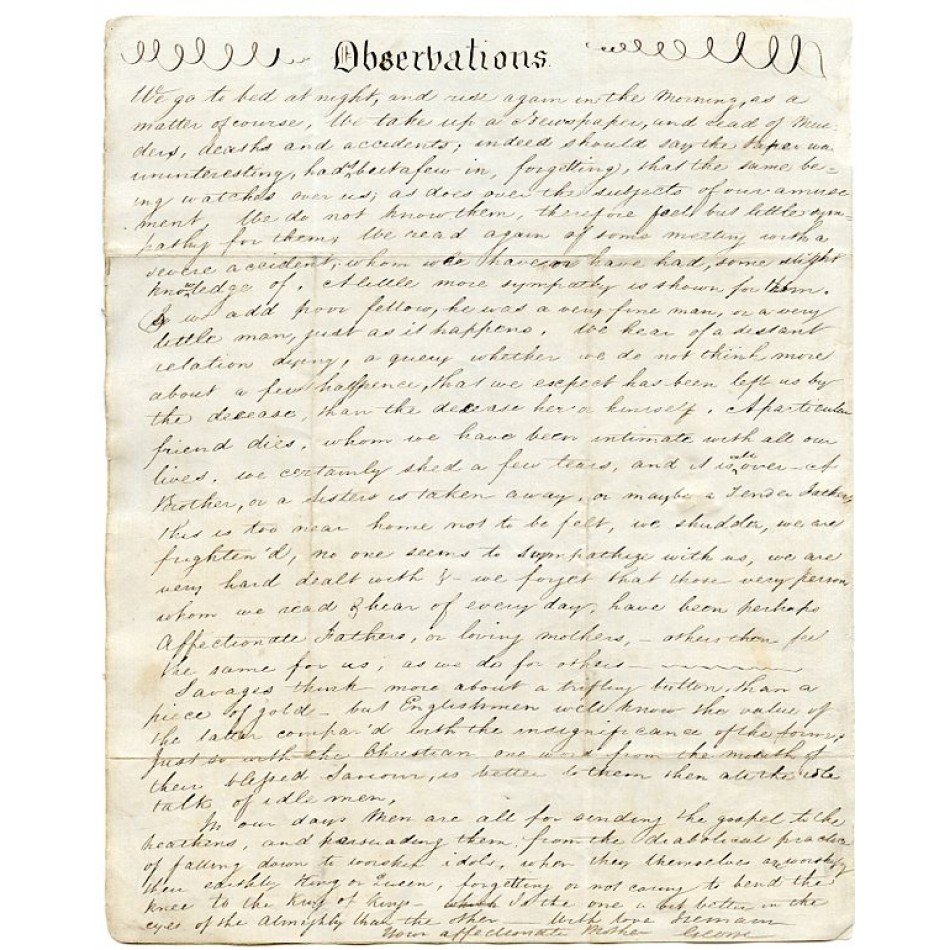 Observations.
We go to bed at night, and rise again in the Morning, as a
matter of course, We take up a Newspaper, and read of Mur-
ders, deaths and accidents; indeed should say the Paper was
uninteresting, had but a few in, forgetting, that the same be-
ing watches over us; as does over the subjects of our amuse
ment, We do not know them, therefore feel but little sym-
pathy for them, We read again of some meeting with a
severe accident, whom we have or have had, some slight
knowledge of. A little more sympathy is shown for them.
& we add poor fellow, he was a very fine man, or a very
little man, just as it happens. We hear of a distant
relation dying, a query whether we do not think more
about a few halfpence, that we expect has been left us by
the decease, than the decease her or himself. A particular
friend dies, whom we have been intimate with all our
lives, we certainly shed a few tears, and it is all over - A
Brother, or a Sisters is taken away, or maybe a Tender Father,
this is too near home not to be felt, we shudder, we are
frighten'd, no one seems to sympathize with us, we are
very hard dealt with & - we forget that those very person
whom we read & hear of every day, have been perhaps
Affectionate Fathers, or loving mothers, - others then feel
the same for us; as we do for others -
Savages think more about a trifling button, than a
piece of gold - but Englishmen well know the value of
the latter compar'd with the insignificance of the former,
Just so with the Christian one word from the mouth of
their blessed Saviour, is better to them then all the idle
talk of idle men,
In our days Men are all for sending the gospel to the
heathens, and persuading them from the diabolical practice
of falling down to worship idols, when they themselves are worship
their earthly King or Queen, forgetting or not caring to bend the
knee to the King of Kings - which Is the one a bit better in the
eyes of the Almighty than the other - With love I remain
Your affectionate Brother George